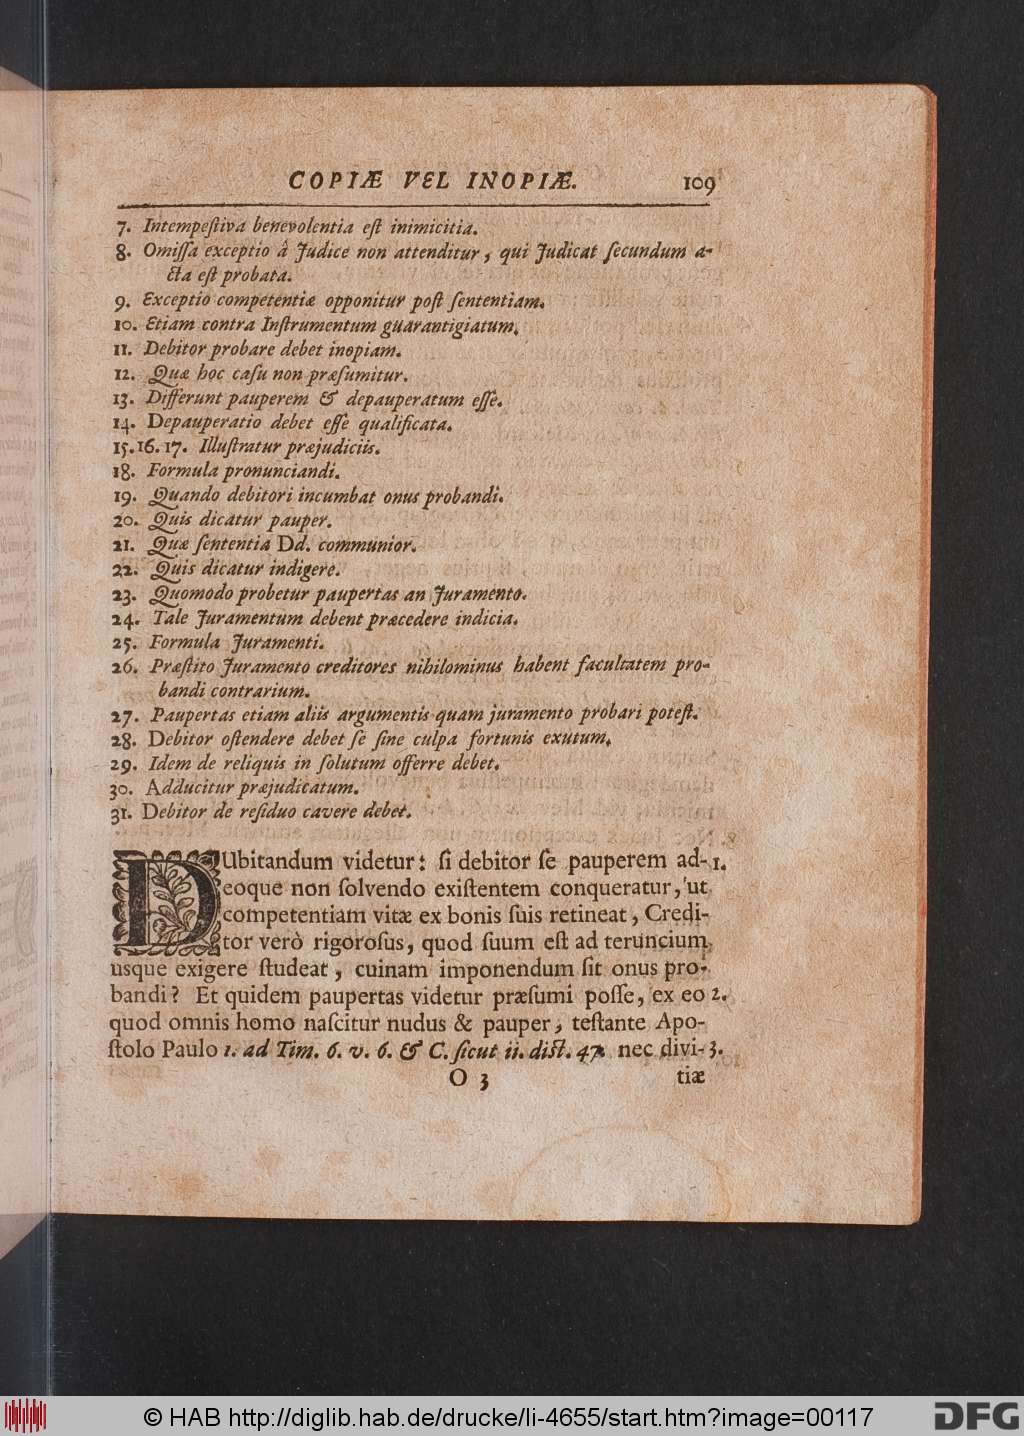 COPIÆ VEL INOPIÆ. 109
7. Intempeſtiva benevolentia eſt inimicitia.
8. Omiſſa exceptio â Judice non attenditur, qui Judicat ſecundum a-
cta eſt probata.
9. Exceptio competentiæ opponitur poſt ſententiam.
10. Etiam contra Inſtrumentum guarantigiatum.
11. Debitor probare debet inopiam.
12. Quæ hoc caſu non præſumitur.
13. Differunt pauperem & depauperatum eſſe.
14. Depauperatio debet eſſe qualificata.
15. 16. 17. Illuſtratur præjudiciis.
18. Formula pronunciandi.
19. Quando debitori incumbat onus probandi.
20. Quis dicatur pauper.
21. Quæ ſententia Dd. communior.
22. Quis dicatur indigere.
23. Quomodo probetur paupertas an Juramento.
24. Tale Juramentum debent præcedere indicia.
25. Formula Juramenti.
26. Præſtito Juramento creditores nihilominus habent facultatem pro-
bandi contrarium.
27. Paupertas etiam aliis argumentis quam juramento probari poteſt.
28. Debitor oſtendere debet ſe ſine culpa fortunis exutum.
29. Idem de reliquis in ſolutum offerre debet.
30. Adducitur præjudicatum.
31. Debitor de reſiduo cavere debet.
DUbitandum videtur: ſi debitor ſe pauperem ad- 1.
eoque non ſolvendo exiſtentem conqueratur, ut
competentiam vitæ ex bonis ſuis retineat, Credi-
tor verò rigoroſus, quod ſuum eſt ad teruncium
usque exigere ſtudeat, cuinam imponendum ſit onus pro-
bandi? Et quidem paupertas videtur præſumi poſſe, ex eo 2.
quod omnis homo naſcitur nudus & pauper, teſtante Apo-
ſtolo Paulo 1. ad Tim. 6. v. 6. & C. ſicut ii. diſt. 47. nec divi- 3.
O 3 tiæ
© HAB http://diglib.hab.de/drucke/li-4655/start.htm?image=00117
DFG